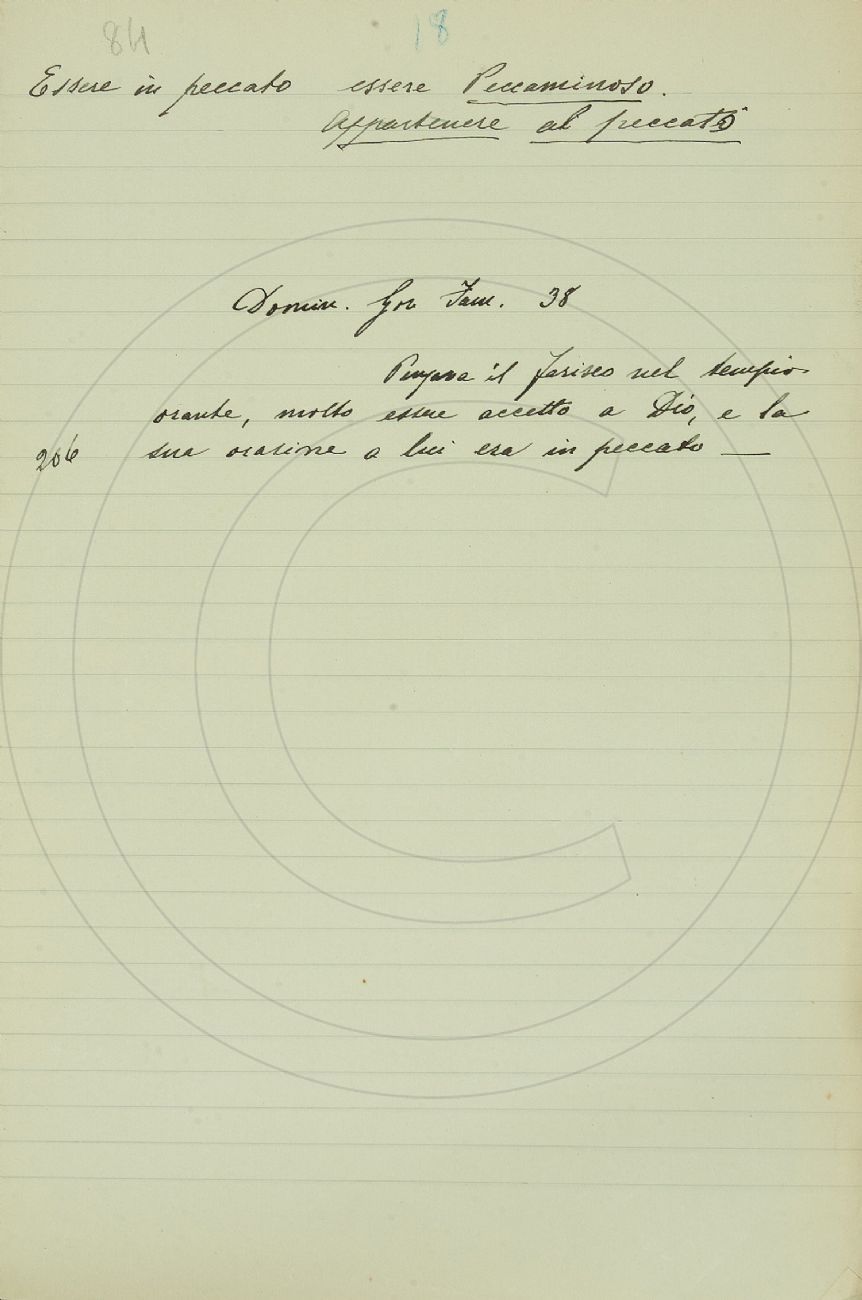 84 18
Essere in peccato essere Peccaminoso.
Appartenere al peccato
Domin. Gov Fam. 38
Pensava il fariseo nel tempio
orante, molto essere accetto a Dio, e la
206 sua orazione a lui era in peccato —